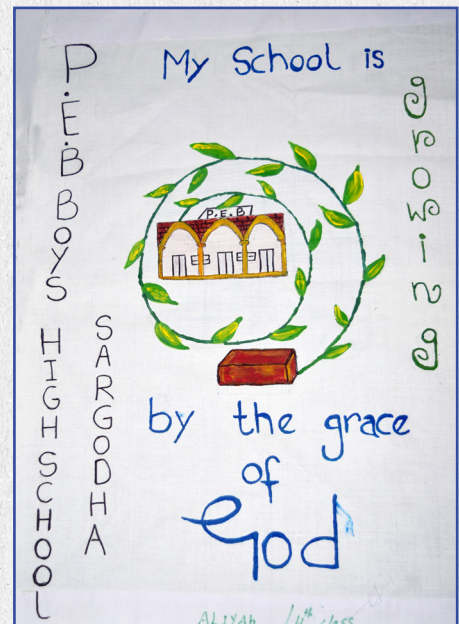 P.E.B BOYS
HIGH SCHOOL
SARGODHA
My School is
growing
P.E.B
by the grace
of
God
ALIYAh / 4th class